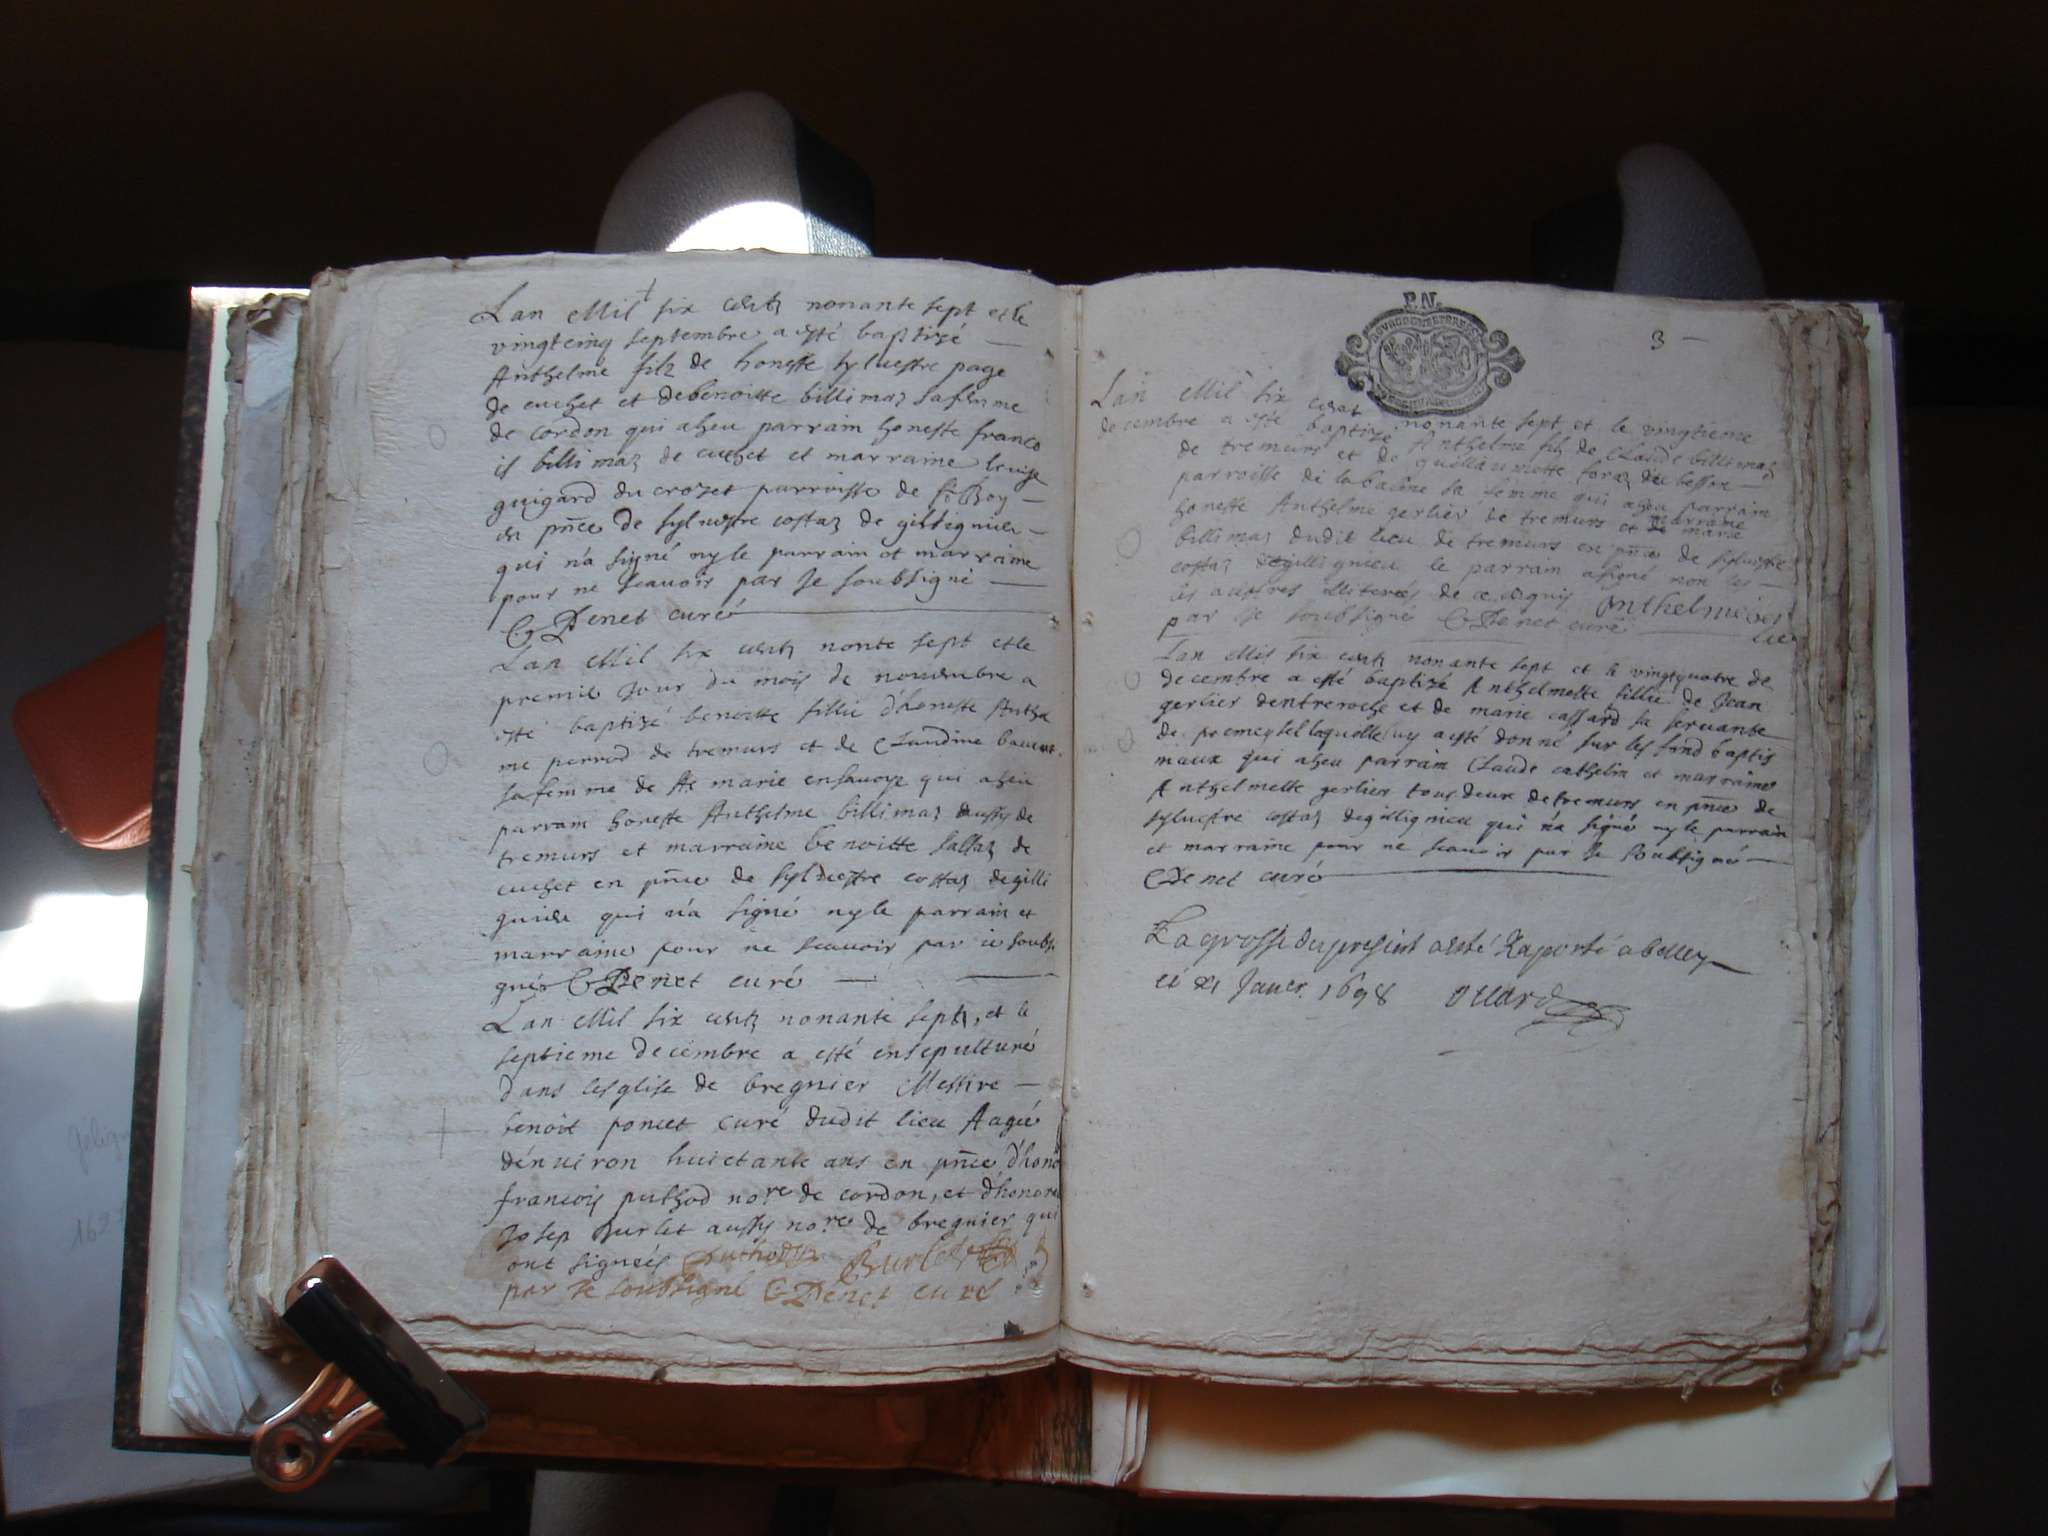 Lan Mil six cents nonante sept et le
vingtcinq septembre a esté baptisé
Anthelme filz de honeste sylvestre page
de cuchet et de benoitte billimaz sa femme
de cordon qui a heu parrain honeste franco
is billimaz de cuchet et marraine
guigard du crozet parroisse de
en pnce de sylvestre costaz de gillignieu
qui n'a signé ny le parrain et marraine
pour ne scavoir par je soubsigné
C Denet curé
Lan Mil six cents nonte sept et le
premie jour du mois de novembre a
esté baptizé benoitte fillie d'honeste Anthel
me perrod de tremurs et de Claudine
sa femme de Ste marie en savoye qui a heu
parrain honeste Anthelme billimaz aussy de
tremurs et marraine benoitte sallaz de
cuchet en pnce de sylvestre costaz de gilli
gnieu qui n'a signé ny le parrain et
marraine pour ne scavoir par je soubsi
gné C Denet curé
Lan Mil six cents nonante sept, et le
septieme decembre a esté ensepulturé
dans lesglise de bregnier Messire
benoit poncet curé dudit lieu Aagé
d'environ huictante ans en pnce d'hono
francois puthod nore de cordon, et d'honora
Josep Burlet aussy nore de bregnier qui
ont signeés Puthod Burlet
par je soubsigné C Denet curé
P.N.
3
Lan Mil six cent nonante sept et le vingtieme
decembre a esté baptizé Anthelme filz de Claude billimaz
de tremurs et de guillaumette foraz du besson
parroisse de la balme sa femme qui a heu parrain
honeste Anthelme gerlier de tremurs et marraine marie
billimaz dudit lieu de tremurs en pnce de sylvestre
costaz de gillignieu le parrain a signé non les
les autres illiterés de ce enquis Anthelme ger
par je soubsigné C Denet curé lie
Lan Mil six cents nonante sept et le vingtquatre de
decembre a esté baptizé Anthelmette fillie de Jean
gerlier dentreroche et de marie cassard sa servante
de premeysel laquelle luy a esté donné sur les fond baptis
maux qui a heu parrain Claude cathelin et marraine
Anthelmette gerlier tous deux de tremurs en pnce de
sylvestre costaz de gillignieu qui n'a signé ny le parrain
et marraine pour ne scavoir par je soubsigné
C Denet curé
La grosse du present a esté Raporté a belley
ce Janer. 1698